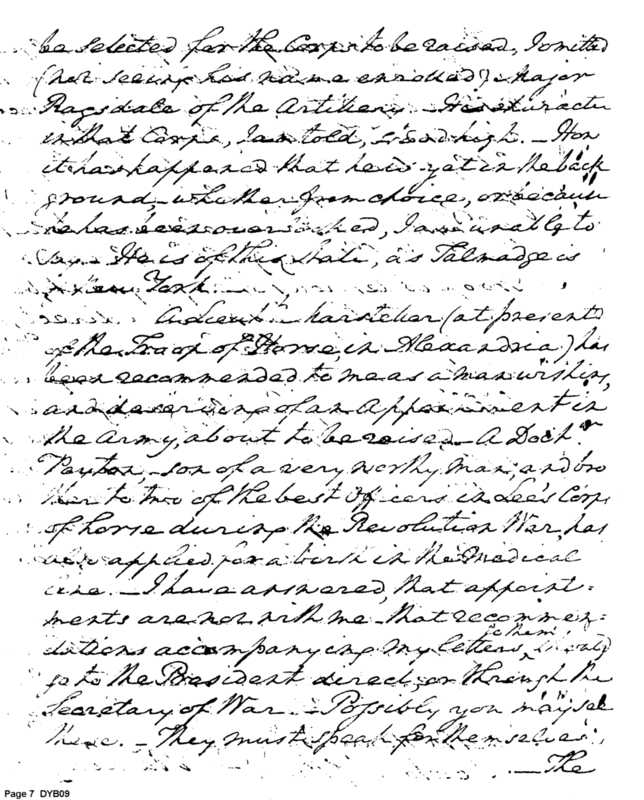 be selected for the Corps to be raised, I omitted
(not seeing his name enrolled) Major
Ragsdale of the Artillery. — His character
in that Corps, I am told, stood high. — How
it has happened that he is yet in the back
ground, whether from choice, or because
he has been overlooked, I am unable to
say. He is of this State, as Talmadge is
of New York. —
A Lieut. (at present
of the Troop of Horse, in Alexandria) has
been recommended to me as a man wishing,
and deserving of an Appointment in
the Army, about to be raised. — A Doctr.
Peyton, son of a very worthy man, and bro
ther to two of the best Officers in Lee's Corps
of horse during the Revolution War, has
also applied for a birth in the Medical
line. — I have answered, that appoint=
ments are not with me — that recommen=
dations accompanying my letters to them, should
go to the President direct, or through the
Secretary of War. — Possibly you may see
these. — They must speak for themselves.
— The
Page 7 DYB09